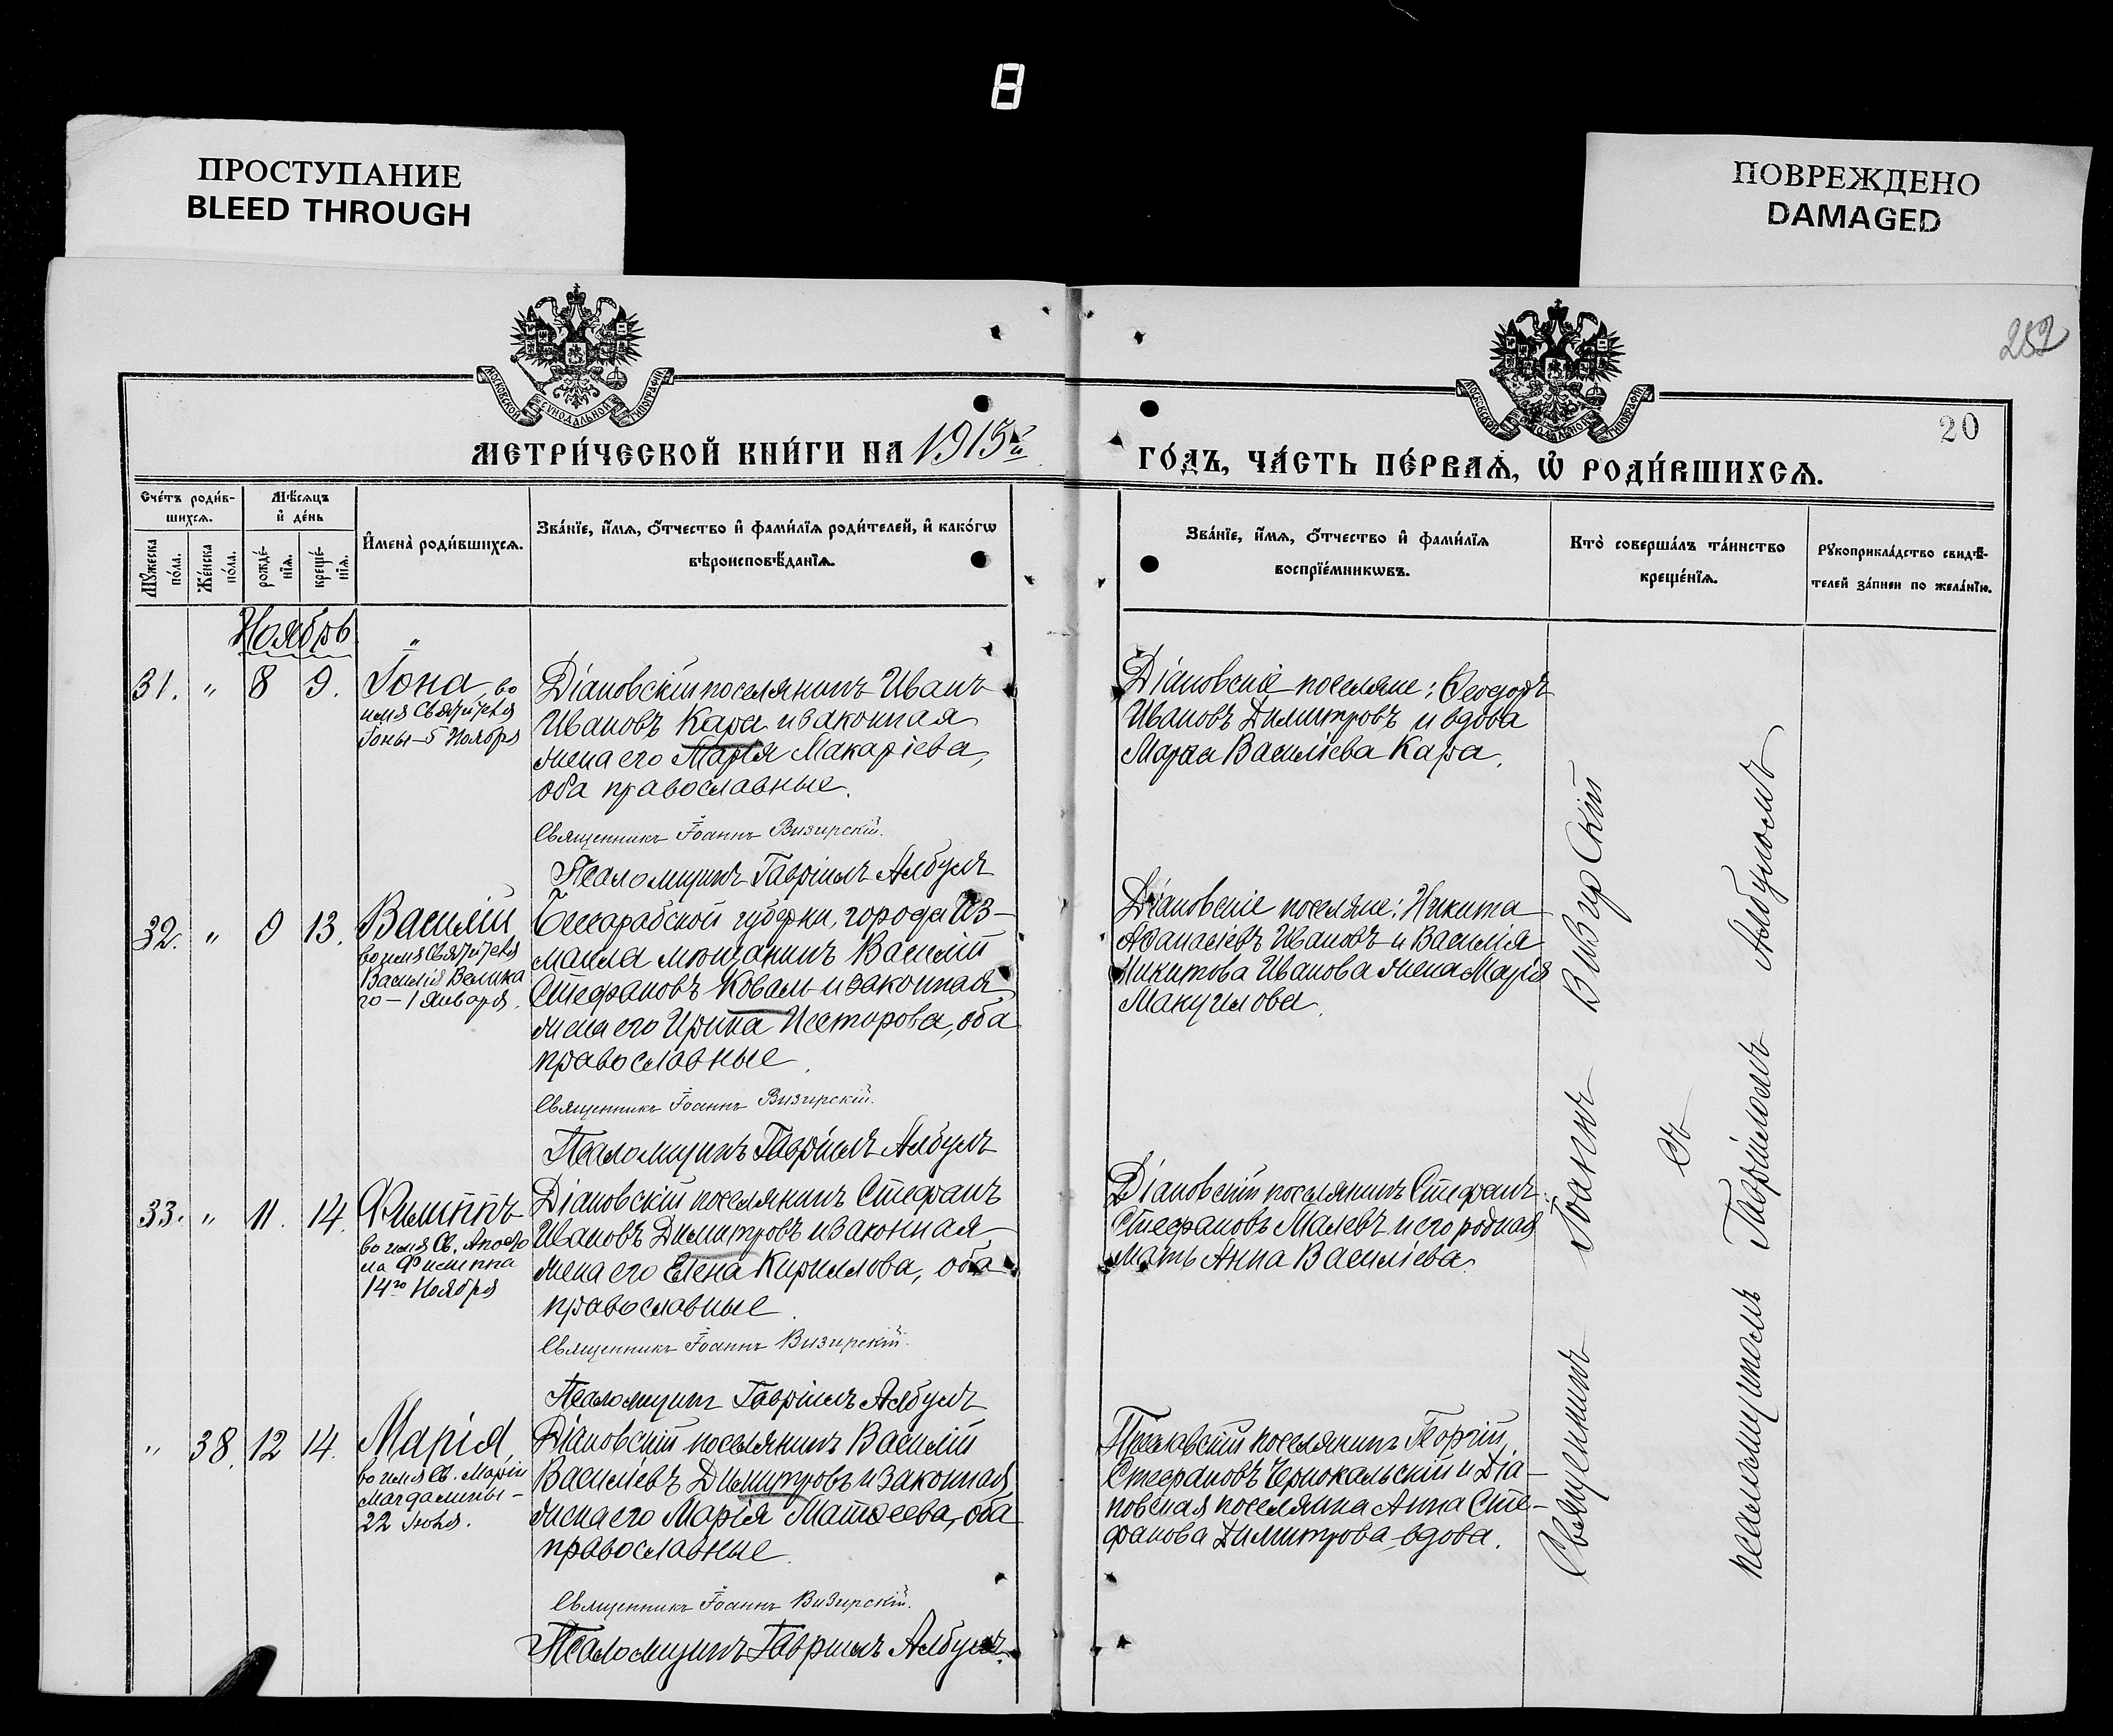 8
ПРОСТУПАНИЕ
BLEED THROUGH
ПОВРЕЖДЕНО
DAMAGED
252
20
МОСКОВСКОЙ СѴНОДАЛЬНОЙ ТИПОГРАФІИ
МОСКОВСКОЙ СѴНОДАЛЬНОЙ ТИПОГРАФІИ
МЕТРИ́ЧЕСКОЙ КНИ́ГИ НА 1915й
ГО́ДЪ, ЧА́СТЬ ПЕ́РВАѦ, Ѡ҆ РОДИ́ВШИХСѦ.
Сче́тъ роди́в-
шихсѧ.
Мѣ́сѧцъ
и҆ де́нь
Мꙋ́жеска
по́ла.
Же́нска
по́ла.
рожде́-
нїѧ.
креще́-
нїѧ.
И҆мена̀ роди́вшихсѧ.
Зва́нїе, и҆́мѧ, ѻ҆́тчество и҆ фами́лїѧ роди́телей, и҆ како́гѡ
вѣроисповѣ́данїѧ.
Зва́нїе, и҆́мѧ, ѻ҆́тчество и҆ фами́лїѧ
воспрїе́мникѡвъ.
Кто̀ соверша́лъ та́инство
креще́нїѧ.
Рꙋкоприкла́дство свидѣ́-
телей за́писи по жела́нїю.
Ноябрь
31. " 8 9. Іона, во
имя Святителя
Іоны - 5 Ноября
Діановскій поселянинъ Иванъ
Ивановъ Кара и законная
жена его Марія Макаріева,
оба православные.
Священникъ Іоаннъ Визирскій.
Псаломщикъ Гавріилъ Албулъ
Діановскіе поселяне: Ѳеодоръ
Ивановъ Димитровъ и вдова
Марѳа Василіева Кара.
32. " 9 13. Василій
во имя Святителя
Василія Велика
го - 1 Января.
Бессарабской губерніи, города Из-
маила мѣщанинъ Василій
Стефановъ Коваль и законная
жена его Ирина Несторова, оба
православные.
Священникъ Іоаннъ Визирскій.
Псаломщикъ Гавріилъ Албулъ
Діановскіе поселяне: Никита
Аѳанасіевъ Ивановъ и Василія
Никитова Иванова жена Марія
33. " 11. 14. Филиппъ
во имя Св. Апосто
ла Филиппа
14го Ноября
Діановскій поселянинъ Стефанъ
Ивановъ Димитровъ и законная
жена его Елена Кириллова, оба
православные.
Священникъ Іоаннъ Визирскій.
Псаломщикъ Гавріилъ Албулъ
Діановскій поселянинъ Стефанъ
Стефановъ Малевъ и его родная
мать Анна Василіева.
" 38. 12 14. Марія,
во имя Св. Маріи
Магдалины -
22 Іюля.
Діановскій поселянинъ Василій
Василіевъ Димитровъ и законная
жена его Марія Матѳеева, оба
православные.
Священникъ Іоаннъ Визирскій.
Псаломщикъ Гавріилъ Албулъ.
поселянинъ Георгій
Стефановъ Чернокальскій и Діа-
новская поселянка Анна Сте-
фанова Димитрова - вдова.
Священникъ Іоаннъ Визирскій
съ
псаломщикомъ Гавріиломъ Албуломъ